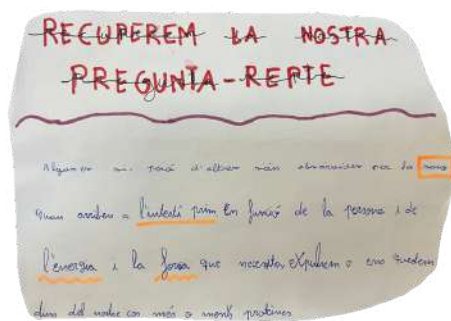 RECUPEREM LA NOSTRA
PREGUNTA-REPTE
d'altres per la sang
quan arriben a l'intestí prim En funció de la persona i de
l'energia i la força que necessiten expulsem o ens quedem
dins del nostre cos més o menys proteïnes